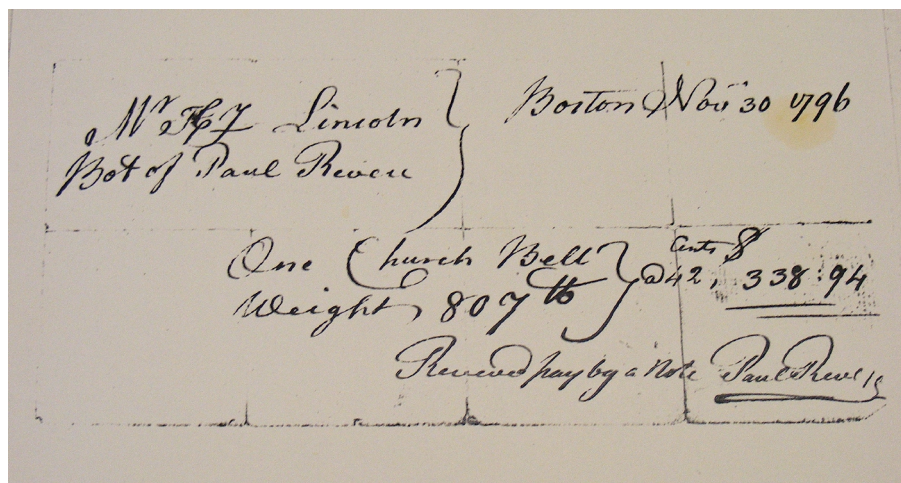 Mr H Lincoln
Bot of Paul Revere
Boston Nov 30 1796
One Church Bell
Weight 807 lb
@ 42 Cents $ 338:94
Received pay by a Note Paul Revere